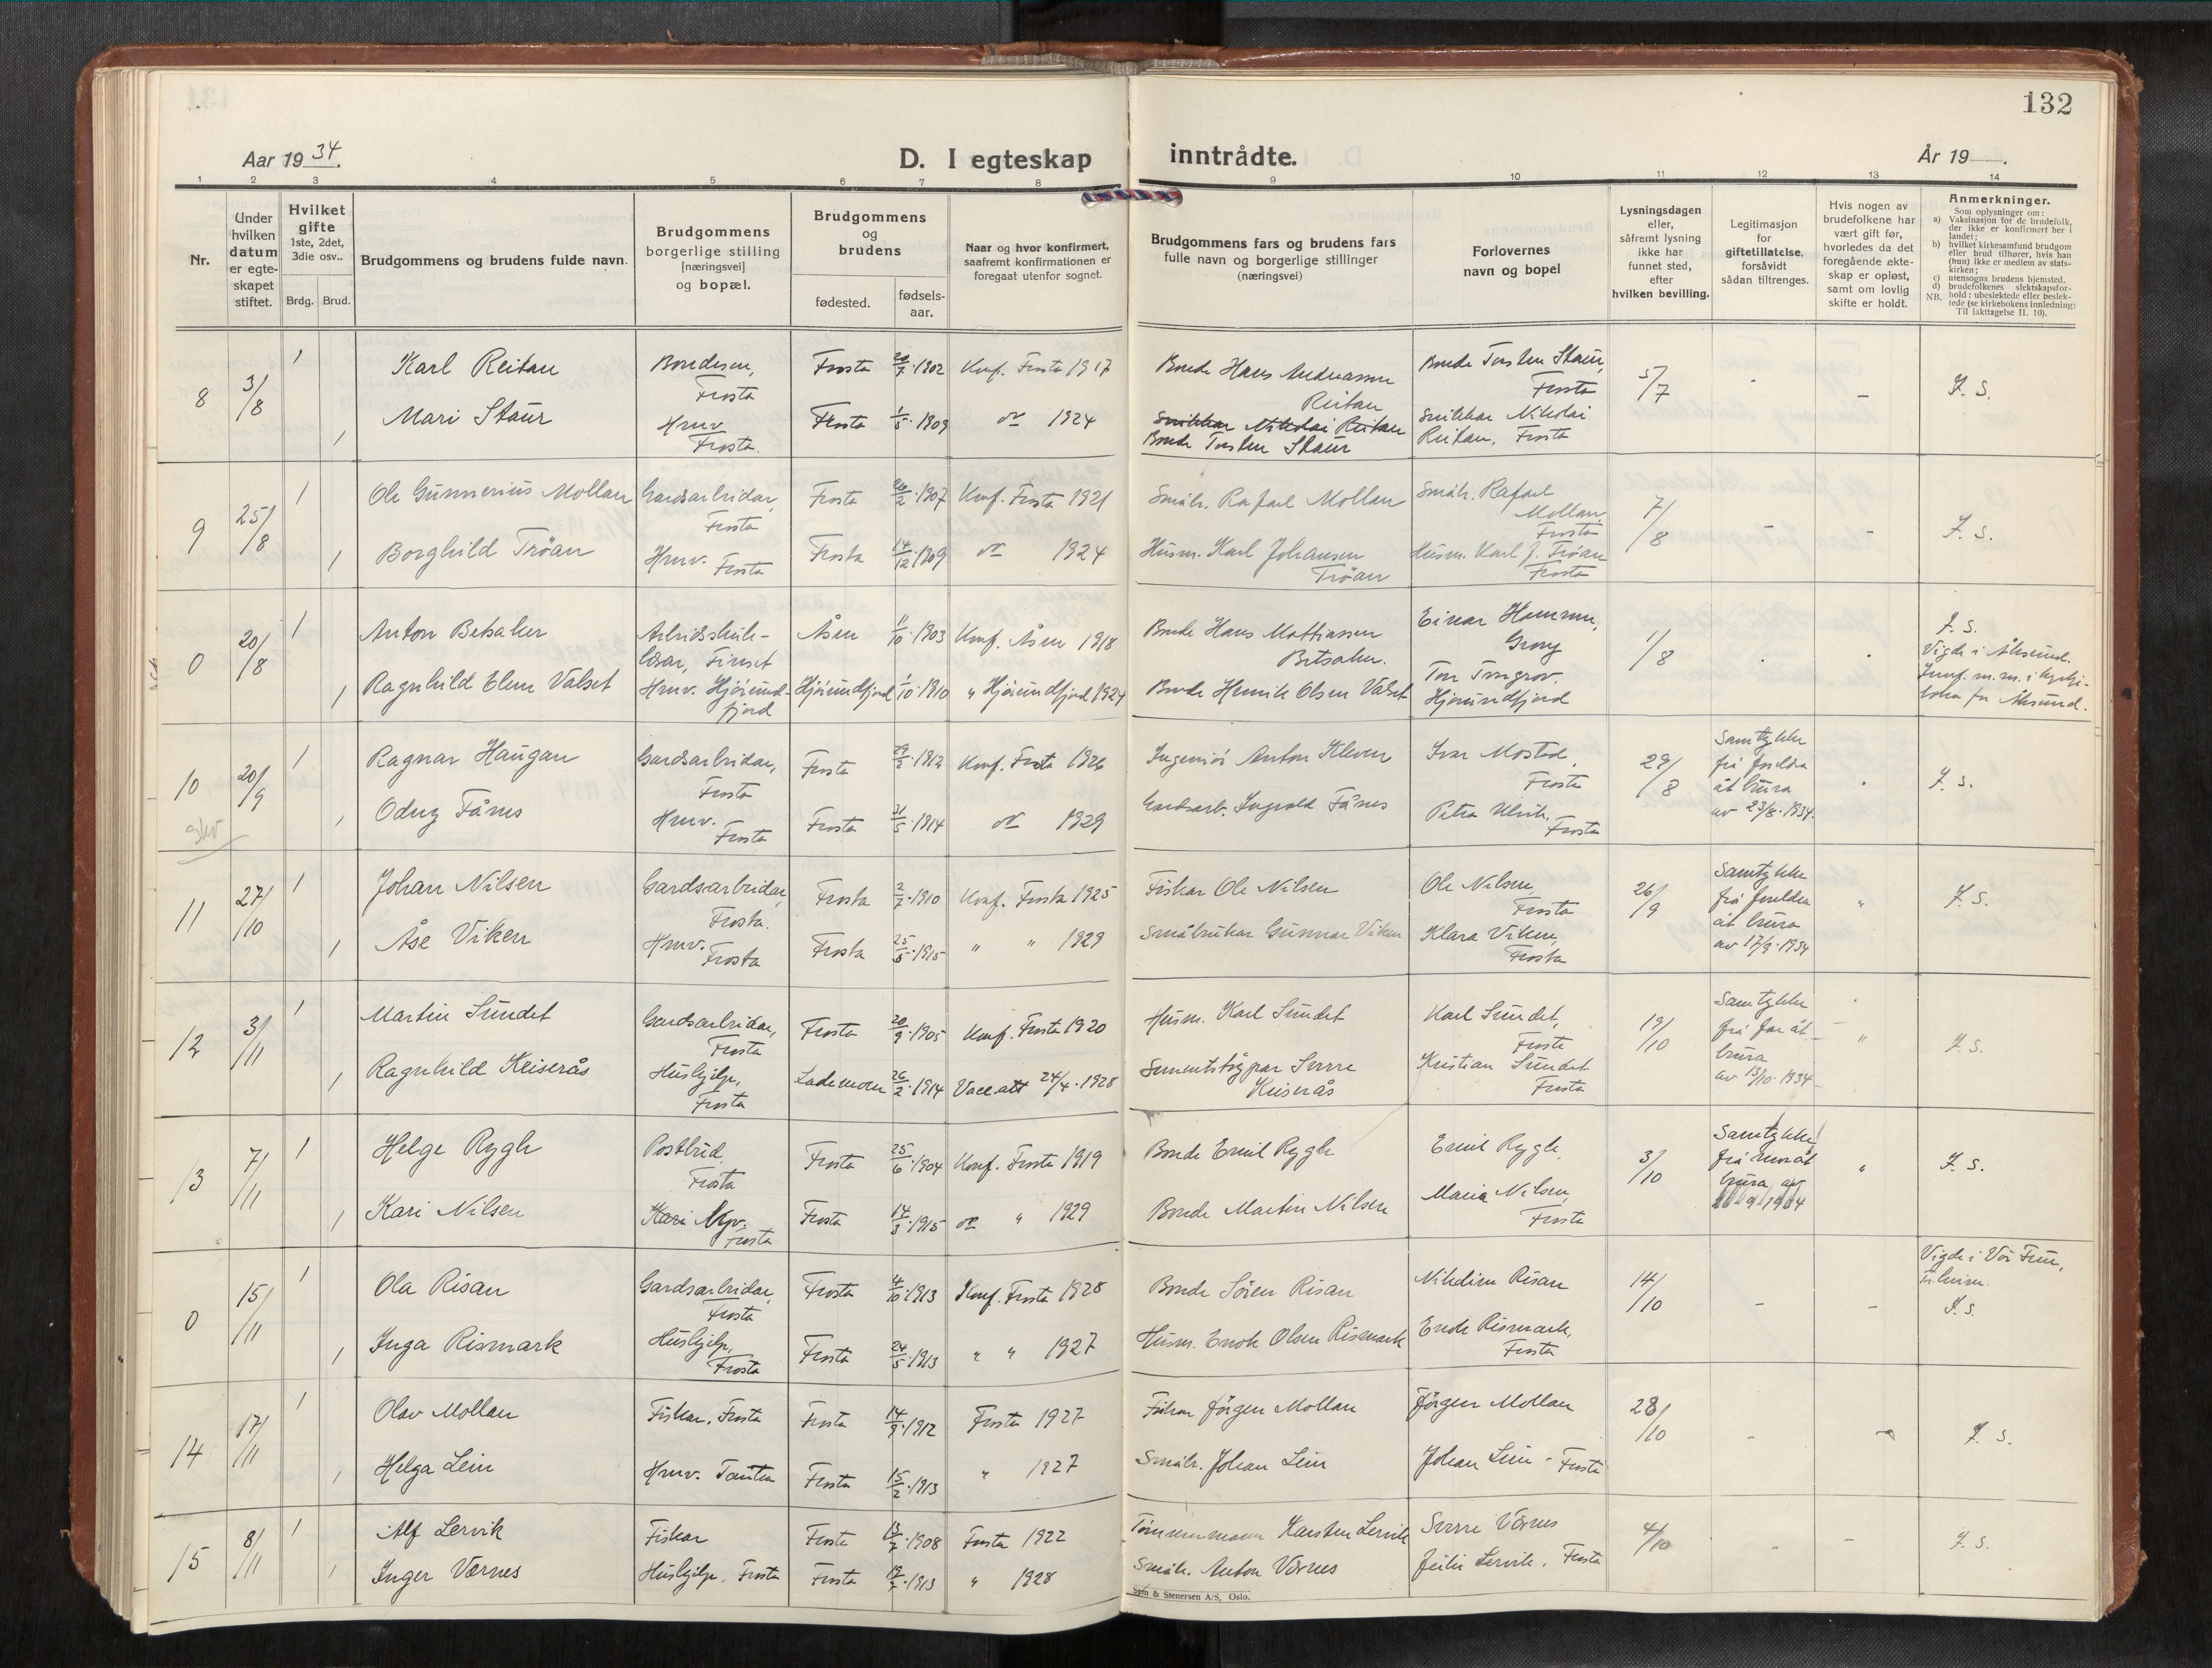 132
Aar 1934.
D. I egteskap inntrådte.
År 19 .
1 2 3 4 5 6 7 8 9 10 11 12 13 14
Nr.
Under hvilken datum er egteskapet stiftet.
Hvilket gifte 1ste, 2det, 3die osv..
Brdg. Brud.
Brudgommens og brudens fulde navn.
Brudgommens borgerlige stilling [næringsvei] og bopæl.
Brudgommens og brudens
fødested.
fødsels-aar.
Naar og hvor konfirmert, saafremt konfirmationen er foregaat utenfor sognet.
Brudgommens fars og brudens fars fulle navn og borgerlige stillinger (næringsvei)
Forlovernes navn og bopel
Lysningsdagen eller, såfremt lysning ikke har funnet sted, efter hvilken bevilling.
Legitimasjon for giftetillatelse, forsåvidt sådan tiltrenges.
Hvis nogen av brudefolkene har vært gift før, hvorledes da det foregående ekteskap er opløst, samt om lovlig skifte er holdt.
Anmerkninger.
Som oplysninger om:
a) Vaksinasjon for de brudefolk, der ikke er konfirmert her i landet;
b) hvilket kirkesamfund brudgom eller brud tilhører, hvis han (hun) ikke er medlem av statskirken;
c) utensogns brudens hjemsted.
d) brudefolkenes slektskapsforhold: ubeslektede eller beslektede (se kirkebokens innledning:
NB. Til iakttagelse II. 10).
8 3/8 1 Karl Reitan Bondeson, Frosta Frosta 1902 Konf. Frosta 1917 Bonde Hans Andreassen Reitan Bonde Torsten Staur, Frosta 5/7 - J. S.
1 Mari Staur Hmv. Frosta. Frosta 1/5 1909 do 1924 Snikkar Nikolai Reitan Bonde Torsten Staur Snikkar Nikolai Reitan, Frosta
9 25/8 1 Ole Gunnerius Mollan Gardsarbeidar, Frosta Frosta 26/2 1907 Konf. Frosta 1921 Småbr. Rafael Mollan Småbr. Rafael Mollan, Frosta 7/8 - - J. S.
1 Borghild Trøan Hmv. Frosta Frosta 14/12 1909 do 1924 Husm. Karl Johansen Trøan Husm. Karl J. Trøan Frosta
0 20/8 1 Anton Betsaker Åsen 11/10 1903 Konf. Åsen 1918 Bonde Hans Mattiassen Betsaker. Einar Hammer, Grong 1/8 J. S.
Vigde i Ålesund.
1 Ragnhild Elen Valset Hmv. Hjørundfjord Hjørundfjord 1/10 1910 " Hjørundfjord 1924 Bonde Henrik Olsen Valset Hjørundfjord
10 20/9 1 Ragnar Haugan Gardsarbeidar, Frosta Frosta 1912 Konf. Frosta 1926 Ingeniør Anton Kleven Ivar Mostad, Frosta 29/8 Samtykke frå foreldra åt brura av 23/8 1934. J. S.
1 Odny Fånes Hmv. Frosta Frosta 31/5 1914 do 1929 Gardsarb. Ingvald Fånes Petra Ulvik, Frosta
11 27/10 1 Johan Nilsen Gardsarbeidar, Frosta. Frosta 2/7 1910 Konf. Frosta 1925 Fiskar Ole Nilsen Ole Nilsen, Frosta 26/9 Samtykke frå foreldra åt brura av 17/9 1934 " J. S.
1 Åse Viken Hmv. Frosta Frosta 25/5 1915 " " 1929 Småbrukar Gunnar Viken Klara Viken, Frosta
12 3/11 1 Martin Sundet Gardsarbeidar, Frosta Frosta 20/9 1905 Konf. Frosta 1920 Husm. Karl Sundet Karl Sundet, Frosta 19/10 Samtykke frå far åt brura av 13/10 1934 " J. S.
1 Ragnhild Keiserås Hushjelp, Frosta Lademoen 26/2 1914 Vacc.att 24/4 1928 Sementstøypar Sverre Keiserås Kristian Sundet Frosta
13 7/11 1 Helge Rygh Postbud, Frosta Frosta 25/6 1904 Konf. Frosta 1919 Bonde Emil Rygh Emil Rygh, 3/10 Samtykke frå mor åt brura av " J. S.
1 Kari Nilsen Frosta Frosta 14/3 1915 do " 1929 Bonde Martin Nilsen Maria Nilsen, Frosta
0 15/11 1 Ola Risan Gardsarbeidar, Frosta Frosta 4/10 1913 Konf. Frosta 1928 Bonde Søren Risan Nikoline Risan 14/10 - - Vigde i Vor Frue, J. S.
1 Inga Rismark Hushjelp, Frosta Frosta 24/5 1913 " " 1927 Husm. Enok Olsen Rismark Enok Rismark, Frosta
14 17/11 1 Olav Mollan Fiskar, Frosta Frosta 14/9 1912 Frosta 1927 Fiskar Jørgen Mollan Jørgen Mollan 28/10 - - J. S.
1 Helga Lein Hmv. Tautra Frosta 15/2 1913 " 1927 Småbr. Johan Lein Johan Lein - Frosta
15 8/11 1 Alf Lervik Fiskar Frosta 1908 Frosta 1922 Tømmermann Karsten Lervik Sverre Værnes 4/10 - - J. S.
1 Inger Værnes Hushjelp. Frosta Frosta 1913 " 1928 Småbr. Anton Værnes Lervik. Frosta
Sem & Stenersen A/S, Oslo.